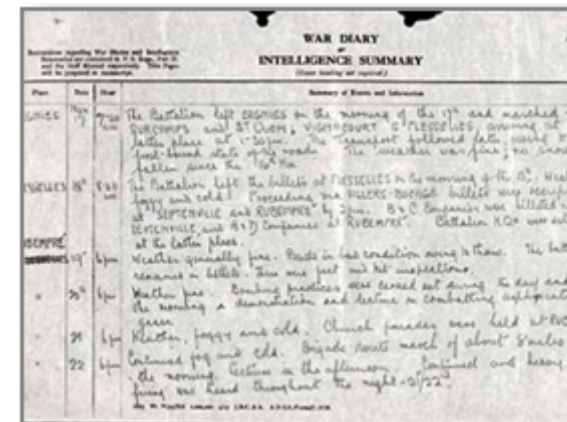 WAR DIARY
or
INTELLIGENCE SUMMARY
(Erase heading not required.)
Instructions regarding War Diaries and Intelligence
Summaries are contained in F. S. Regs., Part II.
and the Staff Manual respectively. Title Pages
will be prepared in manuscript.
Place Date Hour Summary of Events and Information
The Battalion left on the morning of the 17th and marched
SURCAMPS and ST OUEN, VIGNACOURT to FLESSELLES, arriving at
latter place at 1-30pm. The transport followed later, owing to
frost-bound state of the roads. The weather was fine; no snow
fallen since the
ESSELLES 18th The Battalion left the billets at FLESSELLES on the morning of the 18th.
foggy and cold. Proceeding via VILLERS-BOCAGE billets were
at "SEPTENVILLE and RUBEMPRÉ" by 2pm. B & C Companies were billeted
SEPTENVILLE, and A & D Companies at RUBEMPRÉ. Battalion H.Qrs were
at the latter place.
UBEMPRÉ 19th 6pm Weather generally fine. Roads in bad condition owing to thaw. The
remained in billets. There were feet and kit inspections.
" 20th 6pm Weather fine. Bombing practices were carried out during the day and
the morning a demonstration and lecture in combatting
gases.
" 21 6pm Weather, foggy and cold. Church parades were held at
" 22 6pm Continued fog and cold. Brigade route march of about 8 miles
the morning. Lecture in the afternoon. Continued and heavy
firing was heard throughout the night - 21/22nd.